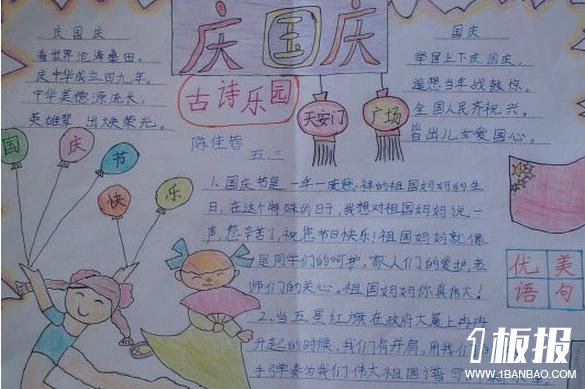 庆国庆
庆国庆
看世界沧海桑田。
庆中华成立四九年。
中华美德源流长，
英雄辈出焕荣光。
国庆
举国上下庆国庆，
遥想当年战鼓惊。
全国人民齐祝兴，
皆出儿女爱国心。
古诗乐园
天安门
广场
陈佳哲
五三
国庆节快乐
1、国庆节是一年一度慈祥的祖国妈妈的生
日，在这个特殊的日子，我想对祖国妈妈说一
声，您辛苦了，祝您节日快乐！祖国妈妈就像
是同学们的呵护，家人们的爱护，老
师们的关心。祖国妈妈你真伟大！
优美
语句
2、当五星红旗在政府大厦上冉冉
升起的时候，我们肩并肩，用我们
手弹奏为我们伟大祖国谱写
1板报
WWW.1BANBAO.COM